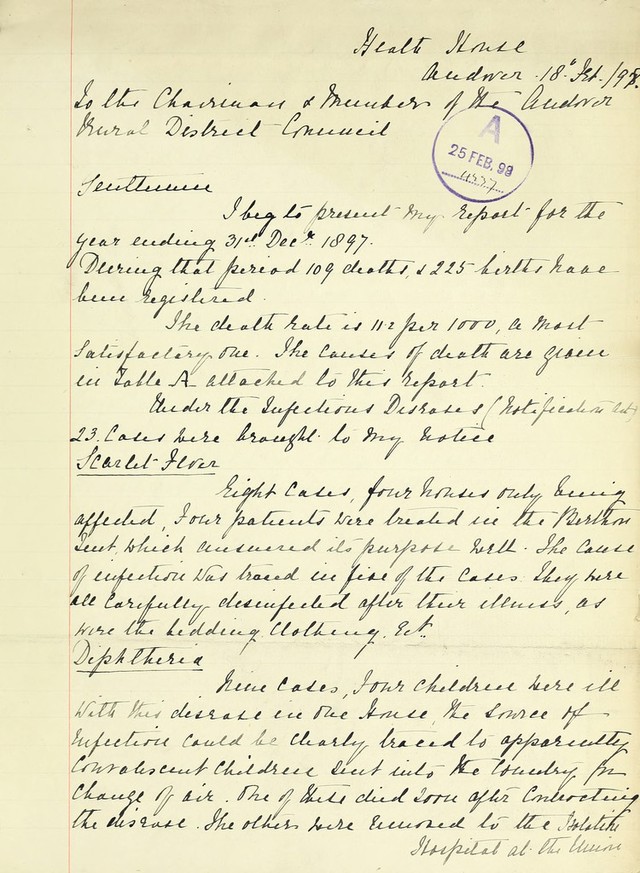 Heath House
Andover 18th Feb. /98.
To the Chairman & Members of the Andover
Rural District Council
A
25 FEB. 98
Gentlemen
I beg to present my report for the
year ending 31st Decr. 1897.
During that period 109 deaths, & 225 births have
been registered.
The death rate is 11.2 per 1000, a most
satisfactory one. The causes of death are given
in Table A attached to this report.
Under the Infectious Diseases (Notification Act)
23. cases were brought to my notice
Scarlet Fever
Eight cases, four houses only being
affected, Four patients were treated in the Berthon
Tent, which answered its purpose well. The cause
of infection was traced in five of the cases. They were
all carefully disinfected after their illness, as
were the bedding clothing, &ct.
Diphtheria
Nine cases, Four children were ill
with this disease in one House, the source of
infection could be clearly traced to apparently
convalescent children sent into the Country for
change of air. One of these died soon after contracting
the disease. The others were removed to the Isolation
Hospital at the Union